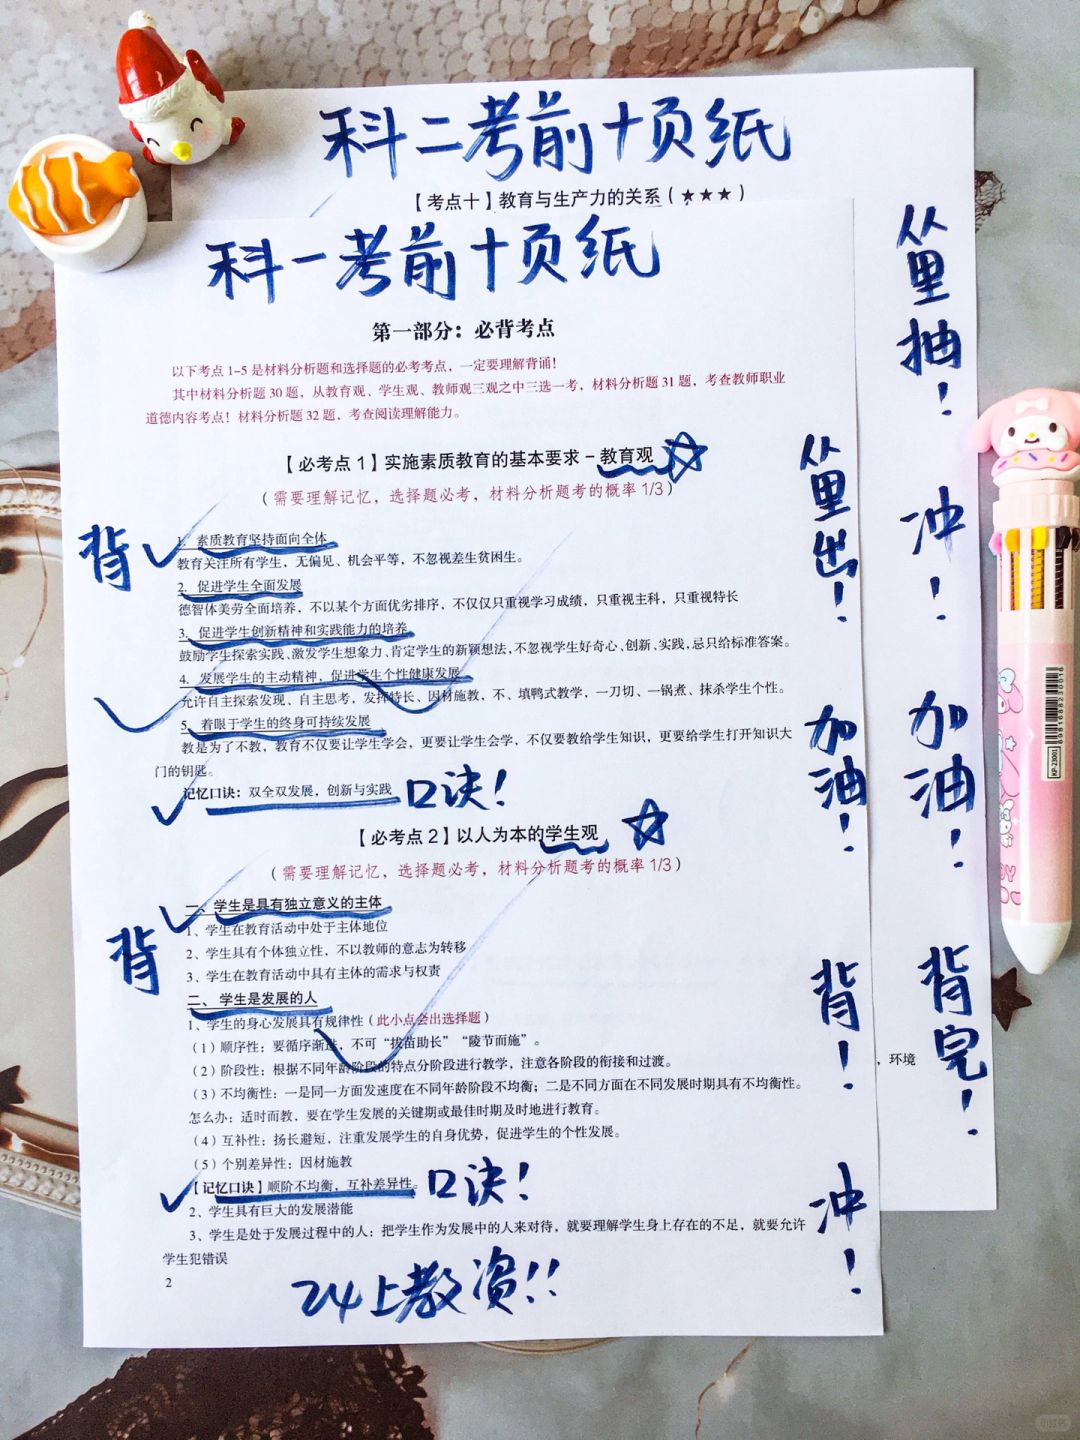 科二考前十页纸
【考点十】教育与生产力的关系（★★★）
科一考前十页纸
第一部分：必背考点
以下考点1-5是材料分析题和选择题的必考考点，一定要理解背诵！
其中材料分析题30题，从教育观、学生观、教师观三观之中三选一考，材料分析题31题，考查教师职业
道德内容考点！材料分析题32题，考查阅读理解能力。
【必考点1】实施素质教育的基本要求-教育观
（需要理解记忆，选择题必考，材料分析题考的概率1/3）
背
1. 素质教育坚持面向全体
教育关注所有学生，无偏见、机会平等，不忽视差生贫困生。
2. 促进学生全面发展
德智体美劳全面培养，不以某个方面优劣排序，不仅仅只重视学习成绩，只重视主科，只重视特长
3. 促进学生创新精神和实践能力的培养
鼓励学生探索实践、激发学生想象力、肯定学生的新颖想法，不忽视学生好奇心、创新、实践，忌只给标准答案。
4. 发展学生的主动精神，促进学生个性健康发展
允许自主探索发现、自主思考，发挥特长、因材施教，不、填鸭式教学，一刀切、一锅煮、抹杀学生个性。
5. 着眼于学生的终身可持续发展
教是为了不教，教育不仅要让学生学会，更要让学生会学，不仅要教给学生知识，更要给学生打开知识大
门的钥匙。
记忆口诀：双全双发展，创新与实践 口诀！
【必考点2】以人为本的学生观
（需要理解记忆，选择题必考，材料分析题考的概率1/3）
背
一、学生是具有独立意义的主体
1、学生在教育活动中处于主体地位
2、学生具有个体独立性，不以教师的意志为转移
3、学生在教育活动中具有主体的需求与权责
二、学生是发展的人
1、学生的身心发展具有规律性（此小点会出选择题）
（1）顺序性：要循序渐进，不可“拔苗助长”“陵节而施”。
（2）阶段性：根据不同年龄阶段的特点分阶段进行教学，注意各阶段的衔接和过渡。
（3）不均衡性：一是同一方面发速度在不同年龄阶段不均衡；二是不同方面在不同发展时期具有不均衡性。
怎么办：适时而教，要在学生发展的关键期或最佳时期及时地进行教育。
（4）互补性：扬长避短，注重发展学生的自身优势，促进学生的个性发展。
（5）个别差异性：因材施教
【记忆口诀】顺阶不均衡，互补差异性。 口诀！
2、学生具有巨大的发展潜能
3、学生是处于发展过程中的人：把学生作为发展中的人来对待，就要理解学生身上存在的不足，就要允许
学生犯错误
2
24上教资！！
从里出！
加油！
背！
冲！
从里抽！
冲！
加油！
背完！
，环境
KP-23001
小红书